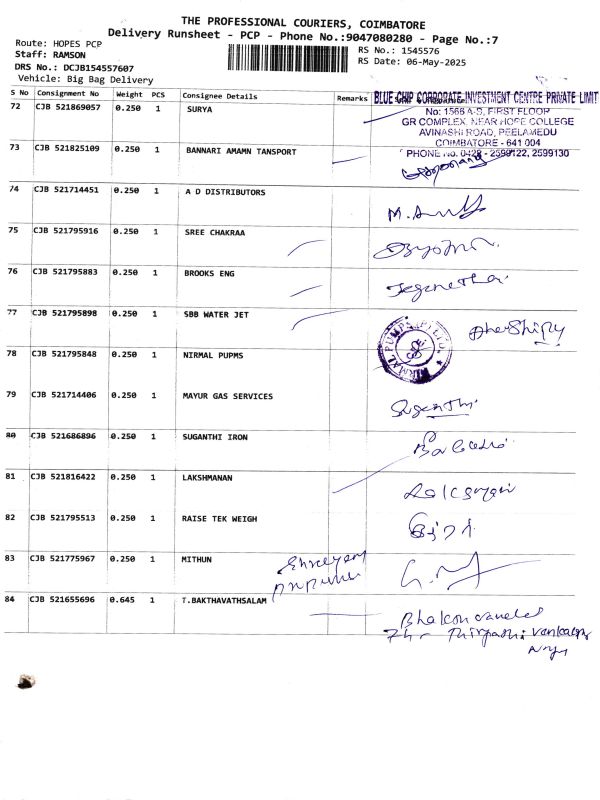 THE PROFESSIONAL COURIERS, COIMBATORE
Delivery Runsheet - PCP - Phone No.:9047080280 - Page No.:7
Route: HOPES PCP
Staff: RAMSON
RS No.: 1545576
DRS No.: DCJB154557607
RS Date: 06-May-2025
Vehicle: Big Bag Delivery
S No Consignment No Weight PCS Consignee Details Remarks
BLUE CHIP CORPORATE INVESTMENT CENTRE PRIVATE LIMIT
No: 1566 A-5, FIRST FLOOR
GR COMPLEX, NEAR HOPE COLLEGE
AVINASHI ROAD, PEELAMEDU
COIMBATORE - 641 004
PHONE No. 0428 - 2599122, 2599130
72 CJB 521869057 0.250 1 SURYA
73 CJB 521825109 0.250 1 BANNARI AMAMN TANSPORT
74 CJB 521714451 0.250 1 A D DISTRIBUTORS
75 CJB 521795916 0.250 1 SREE CHAKRAA
76 CJB 521795883 0.250 1 BROOKS ENG
77 CJB 521795898 0.250 1 SBB WATER JET
78 CJB 521795848 0.250 1 NIRMAL PUPMS
NIRMAL PUMPS (P) LTD.
79 CJB 521714406 0.250 1 MAYUR GAS SERVICES
Suganthi
80 CJB 521686896 0.250 1 SUGANTHI IRON
81 CJB 521816422 0.250 1 LAKSHMANAN
82 CJB 521795513 0.250 1 RAISE TEK WEIGH
83 CJB 521775967 0.250 1 MITHUN
84 CJB 521655696 0.645 1 T.BAKTHAVATHSALAM